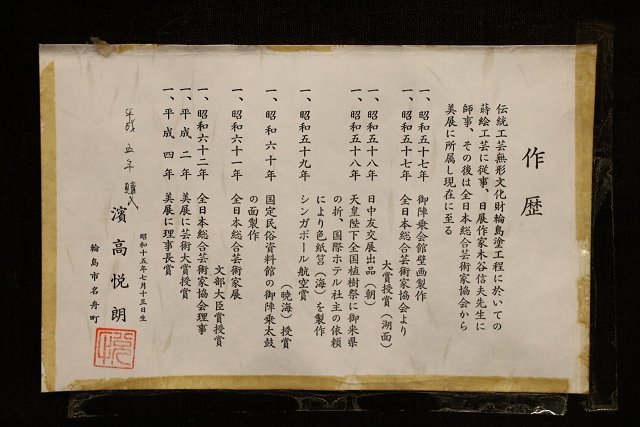 作歴
伝統工芸無形文化財輪島塗工程に於いての
蒔絵工芸に従事、日展作家木谷信夫先生に
師事、その後は全日本総合芸術家協会から
美展に所属し現在に至る
一、昭和五十七年 御陣乗会館壁画製作
一、昭和五十七年 全日本総合芸術家協会より
大賞授賞（湖面）
一、昭和五十八年 日中友交展出品（朝）
一、昭和五十八年 天皇陛下全国植樹祭に御来県
の折、国際ホテル社主の依頼
により色紙筥（海）を製作
一、昭和五十九年 シンガポール航空賞
（暁海）授賞
一、昭和六十年 国定民俗資料館の御陣乗太鼓
の面製作
一、昭和六十一年 全日本総合芸術家展
文部大臣賞授賞
一、昭和六十二年 全日本総合芸術家協会理事
一、平成二年 美展に芸術大賞授賞
一、平成四年 美展に理事長賞
平成五年
昭和十五年七月十三日生
濱高悦朗
輪島市名舟町